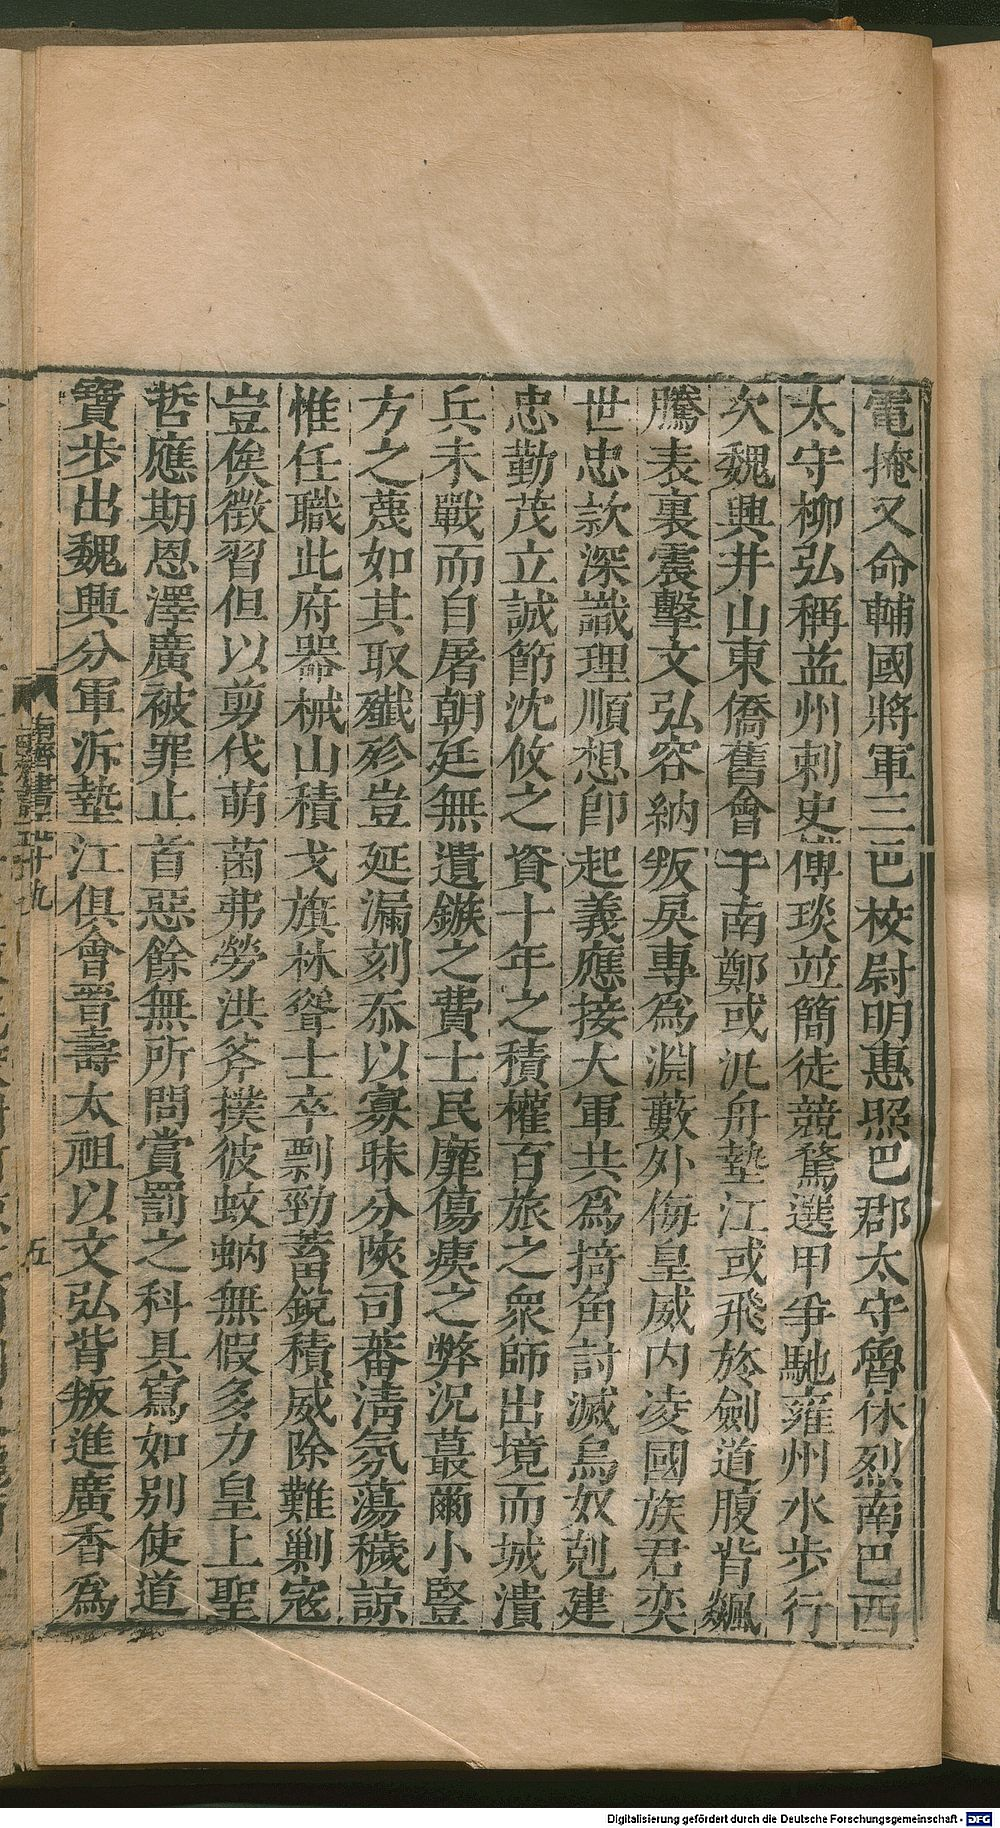 電掩又命輔國將軍三巴校尉明惠照巴郡太守魯休烈南巴西
太守柳弘稱益州刺史傅琰並簡徒競騖選甲爭馳雍州水步行
次魏興井山東僑舊會于南鄭或汎舟墊江或飛旍劍道腹背飆
騰表裏震擊文弘容納叛戾專為淵藪外侮皇威内凌國族君奕
世忠款深識理順想即起義應接大軍共為掎角討滅烏奴剋建
忠勤茂立誠節沈攸之資十年之積權百旅之衆師出境而城潰
兵未戰而自屠朝廷無遺鏃之費士民靡傷痍之弊況蕞爾小豎
方之蔑如其取殲殄豈延漏刻忝以寡昧分陝司蕃清氛蕩穢諒
惟任職此府器械山積戈旗林聳士卒剽勁蓄銳積威除難剿寇
豈俟徵習但以剪伐萌菌弗勞洪斧撲彼蚊蚋無假多力皇上聖
哲應期恩澤廣被罪止首惡餘無所問賞罰之科具寫如別使道
寶步出魏興分軍泝墊江俱會晉壽太祖以文弘背叛進廣香為
南齊書五十九
五
Digitalisierung gefördert durch die Deutsche Forschungsgemeinschaft - DFG